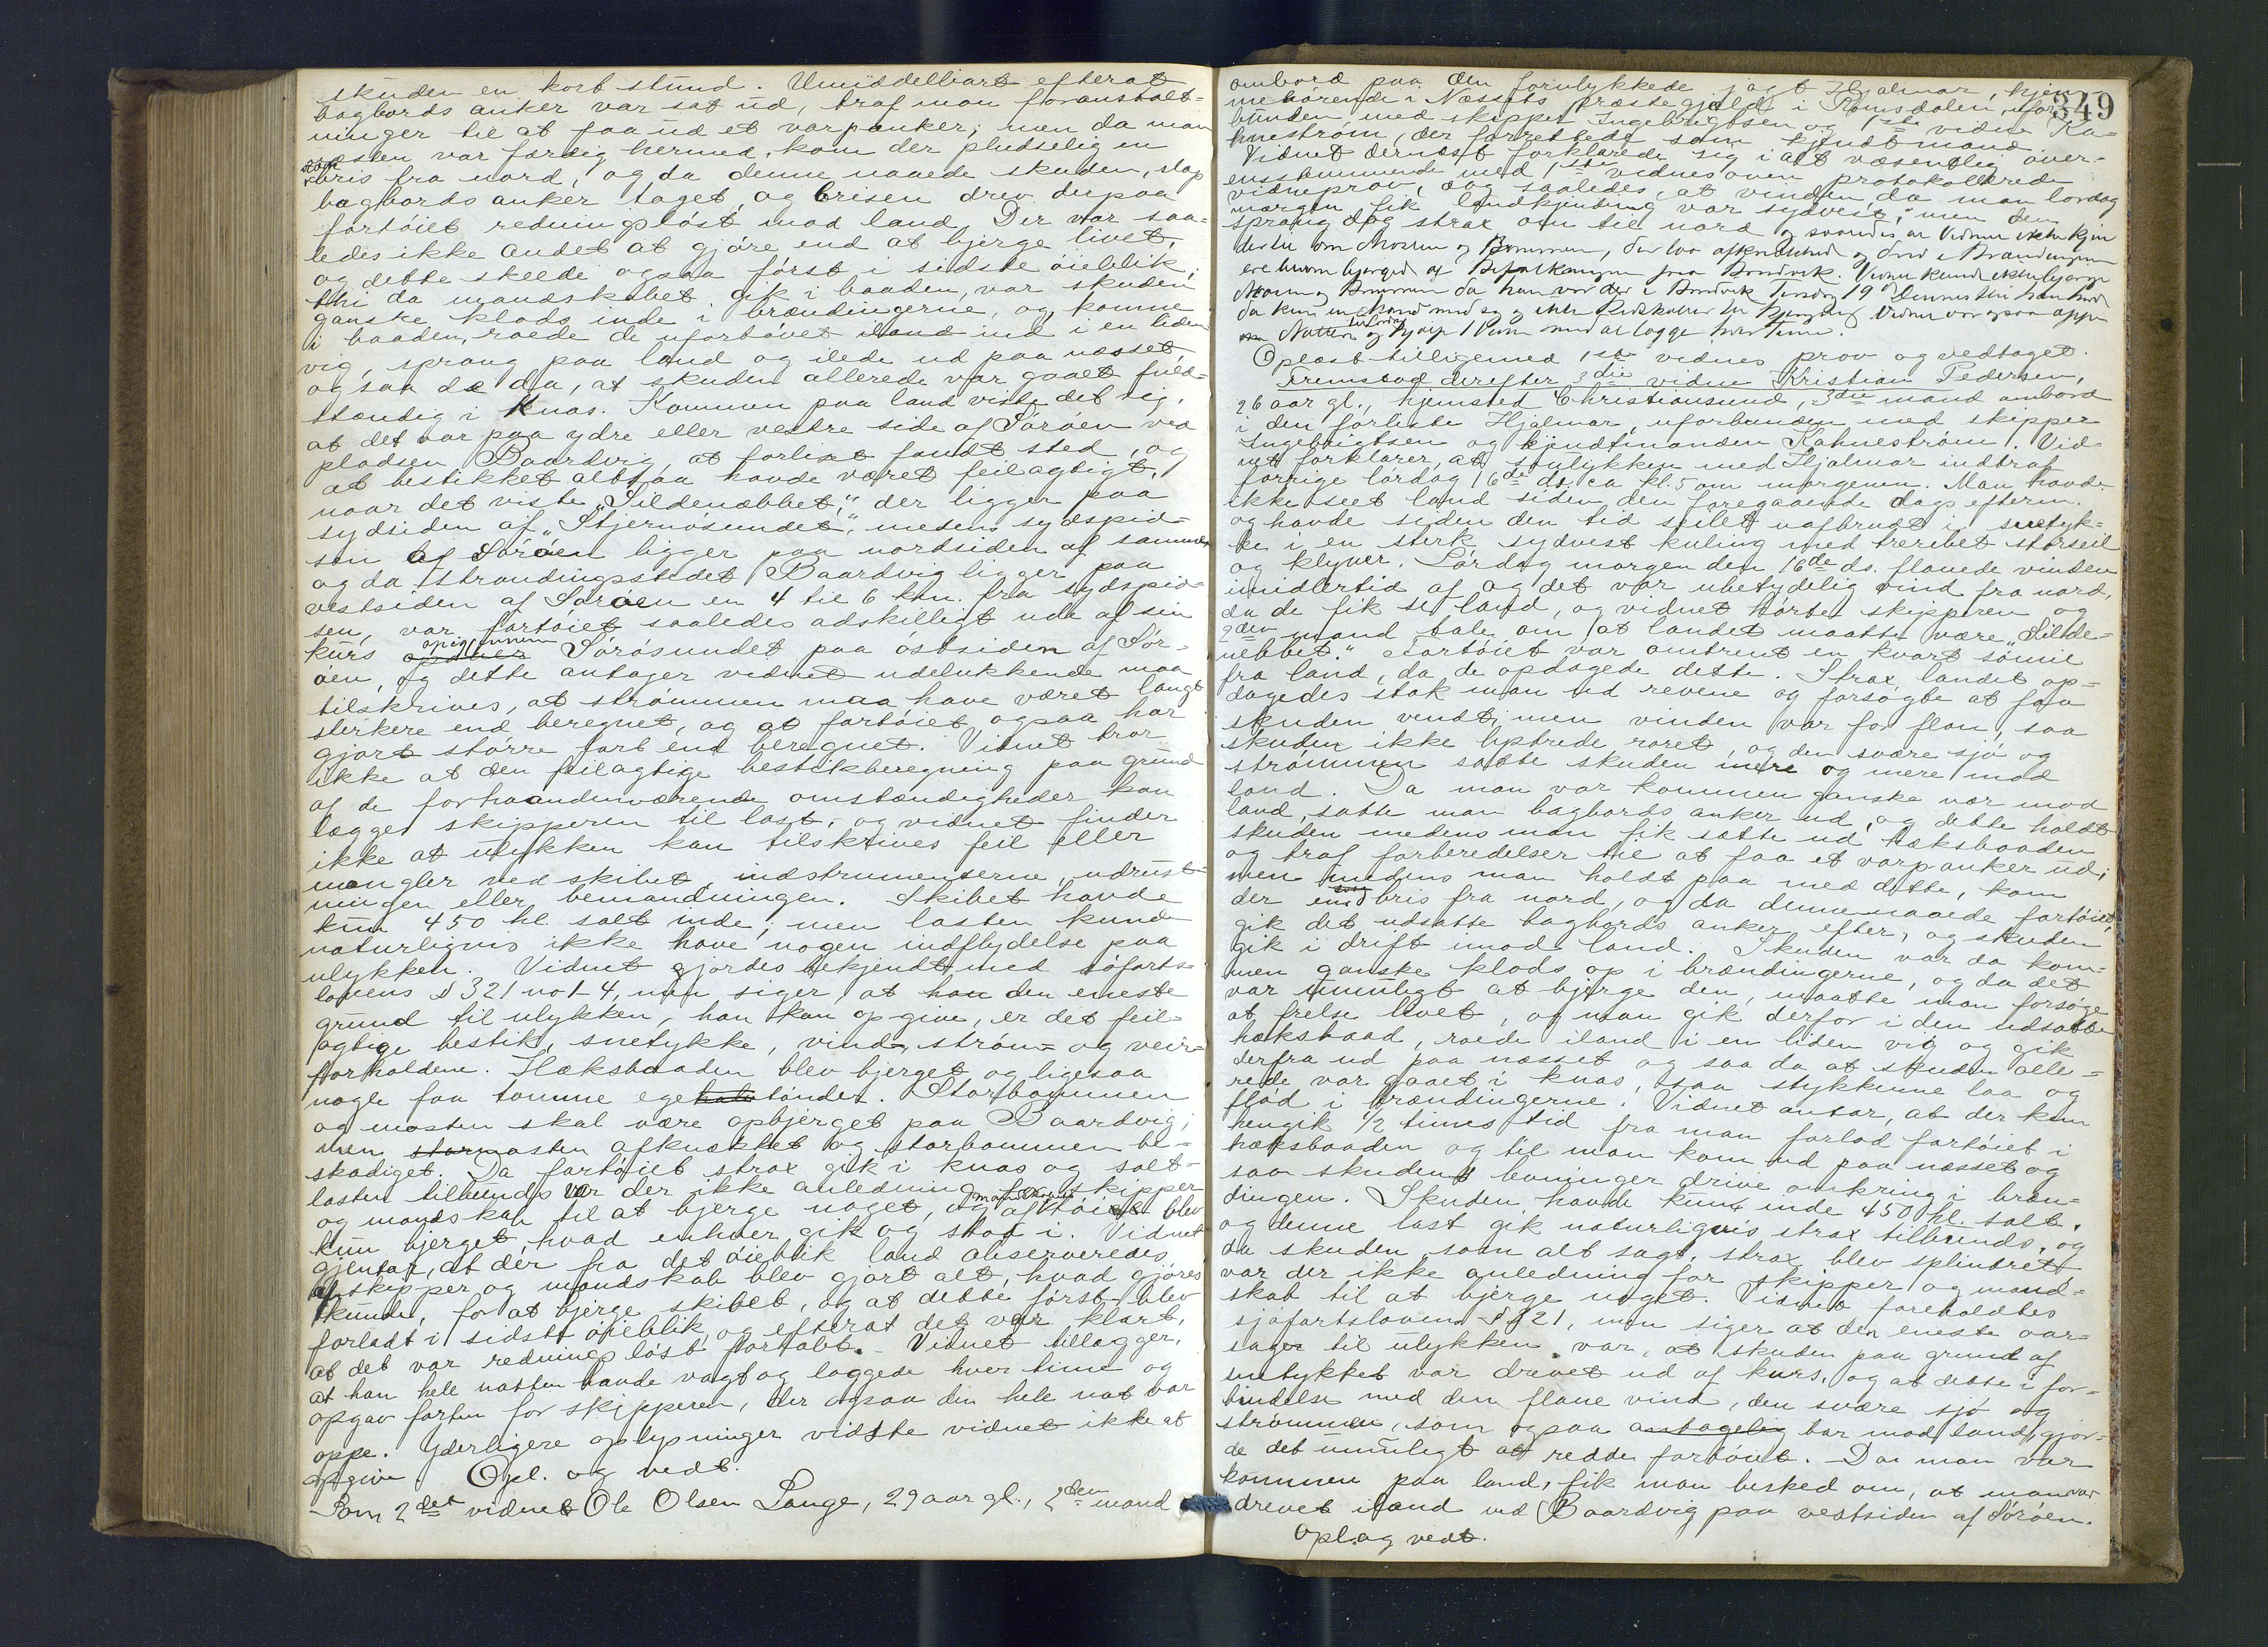 skuden en kort stund. Umiddelbart efterat
bagbords anker var sat ud, traf man foranstalt-
ninger til at faa ud et varpanker; men da man
næsten var færdig hermed, kom der pludselig en
bris fra nord, og da denne naaede skuden, slap
bagbords anker taget, og brisen drev derpaa
fartøiet redningsløst mod land. Der var saa-
ledes ikke andet at gjøre end at bjerge livet,
og dette skeede ogsaa først i sidste øieblik,
thi da mandskabet gik i baaden, var skuden
ganske klods inde i brændingerne, og komne
i baaden, roede de ufortøvet iland ind i en liden
vig, sprang paa land og ilede ud paa næsset,
og saa de da, at skuden allerede var gaaet fuld-
stændig i knas. Kommen paa land viste det sig,
at det var paa ydre eller vestre side af Sørøen ved
pladsen Baardvig, at forliset fandt sted, og
at bestikket altsaa havde været feilagtigt,
naar det viste "Sildenæbbet", der ligger paa
sydsiden af "Stjernøsundet", medens sydspid-
sen af Sørøen ligger paa nordsiden af samme,
og da strandingsstedet Baardvig ligger paa
vestsiden af Sørøen en 4 til 6 klm. fra sydspid-
sen, var fartøiet saaledes adskilligt ude af sin
kurs opigjennem Sørøsundet paa østsiden af Sør-
øen, og dette antager vidnet udelukkende maa
tilskrives, at strømmen maa have været langt
sterkere end beregnet, og at fartøiet ogsaa har
gjort større fart end beregnet. Vidnet tror
ikke at den feilagtige bestikberegning paa grund
af de forhaandenværende omstændigheder kan
lægges skipperen til last, og vidnet finder
ikke at ulykken kan tilskrives feil eller
mangler ved skibet, indstrumenterne, udrust-
ningen eller bemandningen. Skibet havde
kun 450 hl. salt inde, men lasten kunde
naturligvis ikke have nogen indflydelse paa
ulykken. Vidnet gjordes bekjendt med søfarts-
lovens § 321 no 1-4, men siger, at han den eneste
grund til ulykken, han kan opgive, er det feil-
agtige bestik, snetykke, vind-, strøm- og veir-
forholdene. Hæksbaaden blev bjerget og ligesaa
nogle faa tomme egetønder. Storbommen
og masten skal være opbjerget paa Baardvig;
men masten afknækket og storbommen be-
skadiget. Da fartøiet strax gik i knas og salt-
lasten tilbunds var der ikke anledning for skipper
og mandskab til at bjerge noget, og af tøiet blev
kun bjerget, hvad enhver gik og stod i. Vidnet
gjentar, at der fra det øieblik land observeredes
af skipper og mandskab blev gjort alt, hvad gjøres
kunde, for at bjerge skibet, og at dette først blev
forladt i sidste øieblik, og efterat det var klart,
at det var redningsløst fortabt. - Vidnet tillægger,
at han hele natten havde vagt og loggede hver time og
opgav farten for skipperen, der ogsaa den hele nat var
oppe. Yderligere oplysninger vidste vidnet ikke at
opgive. Opl. og vedt.
Som 2det vidne Ole Olsen Lange, 29 aar gl., 2den mand
349
ombord paa den forulykkede jagt Hjalmar hjem-
mehørende i Næssets præstegjæld i Romsdalen, ufor-
bunden med skipper Ingebrigtsen og 1ste vidne Ka-
hnestrøm, der forrettede som kjendtmand.
Vidnet dernæst forklarede sig i alt væsentlig over-
ensstemmende med 1ste vidnes oven protokollerede
vidneprov, dog saaledes, at vinden, da man lørdag
morgen fik landkjending var sydvest; men den
sprang dog strax om til nord og
Masten og Bommen, der laa afknækket og drev i Brændingerne
bjerget af Befolkningen fra Bondvik. Vidnet kunde ikke bjerge
Masten og Bommen da han var der i Bondvik Tirsdag 19
da kun en Mand med sig og ikke Redskaber til Bjerging. Vidnet var ogsaa oppe
Natten til Lørdag og hjalp 1 Vidne med at logge hver Time.
Oplæst tilligemed 1ste vidnes prov og vedtaget.
Fremstod derefter 3die vidne Kristian Pedersen,
26 aar gl., hjemsted Christiansund, 3die mand ombord
i den forliste Hjalmar, uforbunden med skipper
Ingebrigtsen og kjendtmanden Kahnestrøm. Vid-
net forklarer, at ulykken med Hjalmar indtraf
forrige lørdag 16de ds. ca kl. 5 om morgenen. Man havde
ikke seet land siden den foregaaende dags efterm.
og havde siden den tid seilet uafbrudt i snetyk-
ke i en sterk sydvest kuling med trerebet storseil
og klyver. Lørdag morgen den 16de ds. flauede vinden
imidlertid af og det var ubetydelig vind fra nord,
da de fik se land, og vidnet hørte skipperen og
2den mand tale om at landet maatte være "Silde-
nebbet." Fartøiet var omtrent en kvart sømil
fra land, da de opdagede dette. Strax landet op-
dagedes stak man ud revene og forsøgte at faa
skuden vendt, men vinden var for flau, saa
skuden ikke lystrede roret, og den svære sjø og
strømmen satte skuden mere og mere mod
land. Da man var kommen ganske nær mod
land, satte man bagbords anker ud, og dette holdt
skuden medens man fik satte ud hæksbaaden
og traf forberedelser til at faa et varpanker ud;
men medens man holdt paa med dette, kom
der bris fra nord, og da denne naaede fartøiet,
gik det udsatte bagbords anker efter, og skuden
gik i drift imod land. Skuden var da kom-
men ganske klods op i brændingerne, og da det
var umuligt at bjerge den, maatte man forsøge
at frelse livet, og man gik derfor i den udsatte
hæksbaad, roede iland i en liden vig og gik
derfra ud paa næsset og saa da at skuden alle-
rede var gaaet i knas, saa stykkerne laa og
flød i brændingerne. Vidnet antar, at der kun
hengik 1/2 times tid fra man forlod fartøiet i
hæksbaaden og til man kom ud paa næsset og
saa skudens levninger drive omkring i bræn-
dingen. Skuden havde kun inde 450 hl. salt,
og denne last gik naturligvis strax tilbunds, og
da skuden som alt sagt, strax blev splintret,
var der ikke anledning for skipper og mand-
skab til at bjerge noget. Vidnet foreholdtes
sjøfartslovens § 321, men siger at den eneste aar-
sager til ulykken var, at skuden paa grund af
snetykket var drevet ud af kurs, og at dette i for-
bindelse med den flaue vind, den svære sjø og
strømmen, som ogsaa antagelig bar mod land, gjor-
de det umuligt at redde fartøiet. - Da man var
kommen paa land, fik man besked om, at man var
drevet iland ved Baardvig paa vestsiden af Sørøen.
Opl. og vedt.